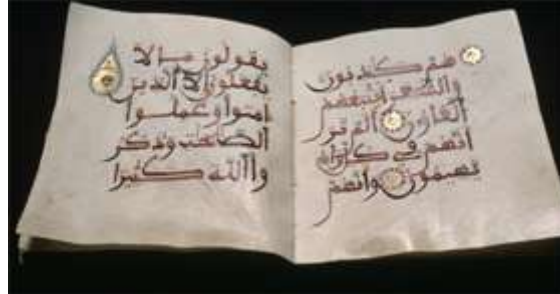 هم كذبون
والشعراء يتبعهم
الغاون الم تر
انهم في كل واد
يهيمون وانهم
يقولون ما لا
يفعلون الا الذين
امنوا وعملوا
الصلحت وذكر
وا الله كثيرا